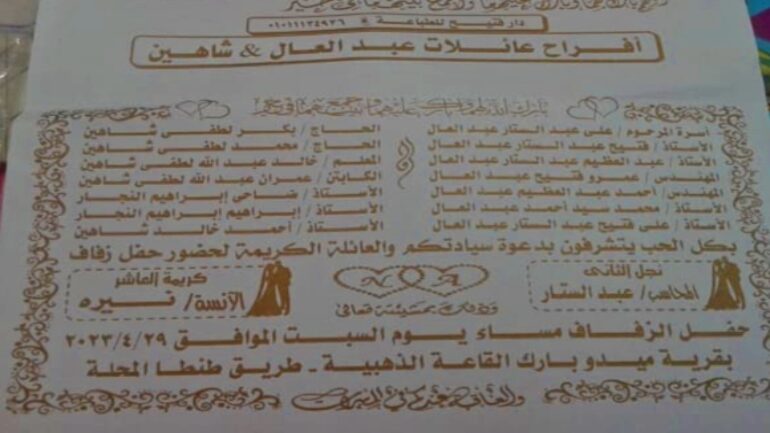 بارك الله لهما وبارك عليهما وجمع بينهما في خير
دار فتيح للطباعة ٠١٠١١١٣٤٩٣٦
أفراح عائلات عبد العال & شاهين
بارك الله لهما وبارك عليهما وجمع بينهما في خير
أسرة المرحوم / على عبد الستار عبد العال
الأستاذ / فتيح عبد الستار عبد العال
الأستاذ / عبد العظيم عبد الستار عبد العال
المهندس / عمرو فتيح عبد العال
المهندس / أحمد عبد العظيم عبد العال
الأستاذ / محمد سيد أحمد عبد العال
الأستاذ / على فتيح عبد الستار عبد العال
الحاج / بكر لطفى شاهين
الحاج / محمد لطفى شاهين
المعلم / خالد عبد الله لطفى شاهين
الكابتن / عمران عبد الله لطفى شاهين
الأستاذ / ضاحى إبراهيم النجار
الأستاذ / إبراهيم إبراهيم النجار
الأستاذ / أحمد خالد شاهين
بكل الحب يتشرفون بدعوة سيادتكم والعائلة الكريمة لحضور حفل زفاف
نجل الثانى
المحاسب / عبد الستار
N A
وذلك بمشيئة تعالى
كريمة العاشر
الآنسة / نيره
حفل الزفاف مساء يوم السبت الموافق ٢٠٢٣/٤/٢٩
بقرية ميدو بارك القاعة الذهبية - طريق طنطا المحلة
والعاقبة عندكم في المسرات